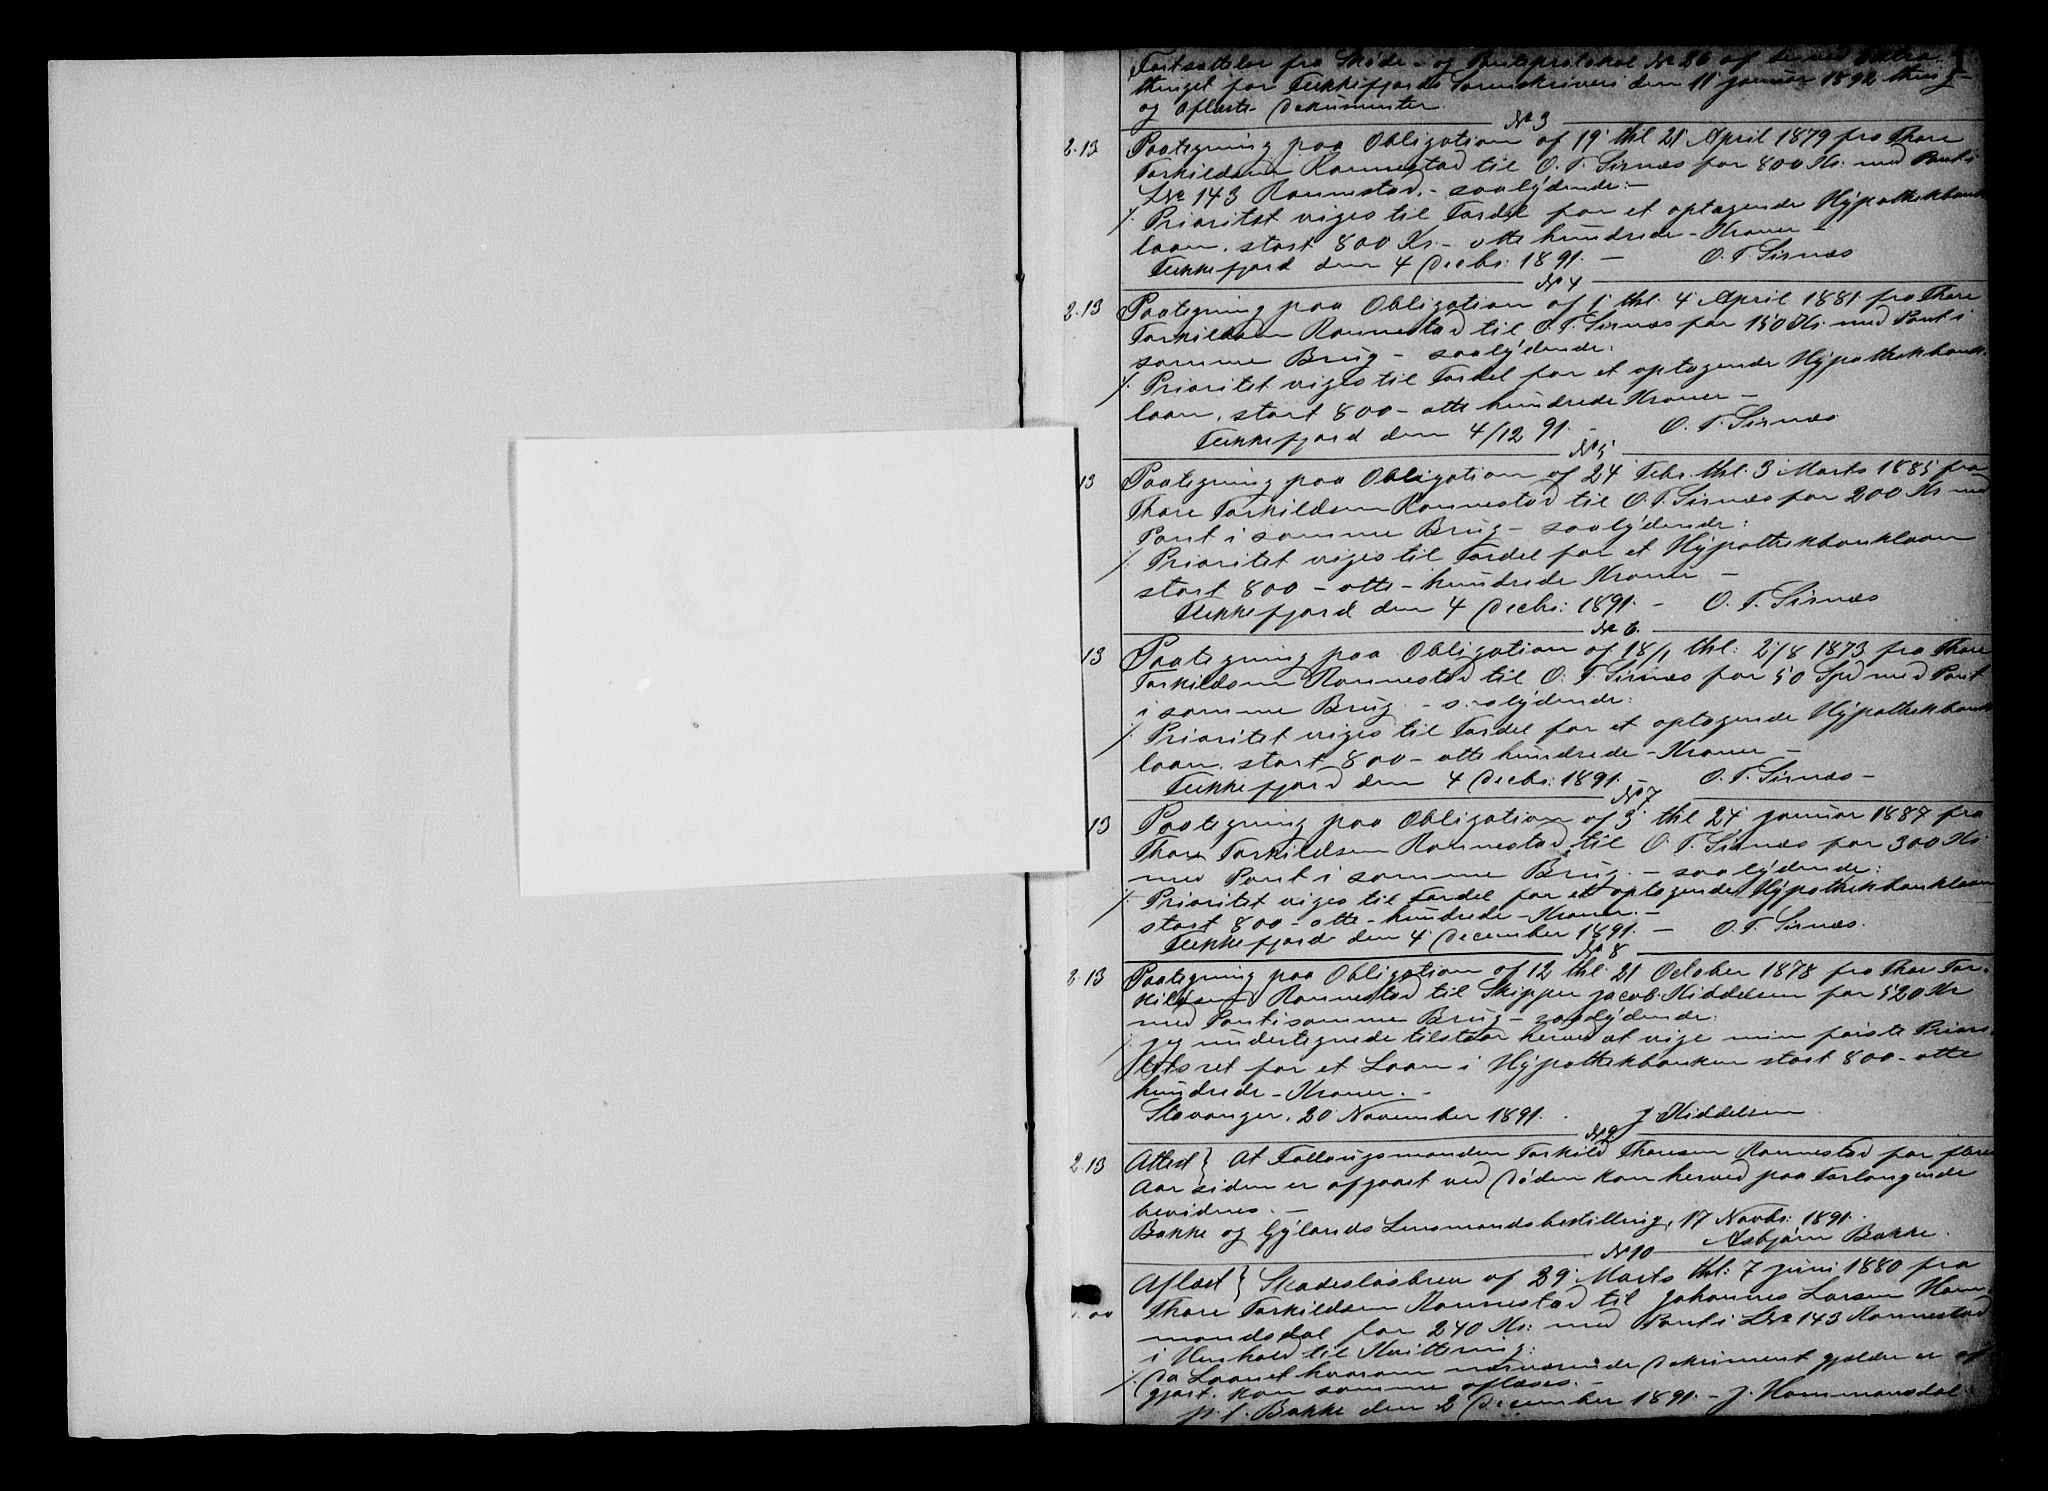 1
Fortsættelse fra Skjøde- og Panteprotokol No 26 af de ved
thinget for Flekkefjords Sorenskriveri den 11 januar 1892 thing-
og aflæste Dokumenter.
No 3
2.13 Paategning paa Obligation af 19 thl 21 April 1879 fra Thore
Torkildsen Ronnestad til O. T. Sirnæs for 800 Kr. med Pant i
LNo 143 Ronnestad. - saalydende:-
/. Prioritet viges til Fordel for et optagende Hypothekbank-
laan, stort 800 Kr.- otte hundrede - Kroner -
Flekkefjord den 4 Decbr. 1891. - O. T. Sirnæs
No 4
2.13 Paategning paa Obligation af 1 thl. 4 April 1881 fra Thore
Torkildsen Ronnestad til O. T. Sirnæs for 150 Kr. med Pant i
samme Brug - saalydende:
/. Prioritet viges til Fordel for et optagende Hypothekbank-
laan, stort 800 - otte hundrede Kroner -
Flekkefjord den 4/12 91. - O. T. Sirnæs
No 5
13 Paategning paa Obligation af 24 Febr. thl. 3 Marts 1885 fra
Thore Torkildsen Ronnestad til O. T. Sirnæs for 200 Kr med
Pant i samme Brug - saalydende:
/. Prioritet viges til Fordel for et Hypothekbanklaan
stort 800 - otte - hundrede Kroner -
Flekkefjord den 4 Decbr. 1891. - O. T. Sirnæs
No 6.
13 Paategning paa Obligation af 18/1 thl. 2/8 1873 fra Thore
Torkildsen Ronnestad til O. T. Sirnæs for 50 Spd med Pant
i samme Brug. - saalydende:
/. Prioritet viges til Fordel for et optagende Hypothekbank
laan, stort 800 - otte hundrede - Kroner -
Flekkefjord den 4 Decbr. 1891. - O. T. Sirnæs -
No 7
13 Paategning paa Obligation af 3 thl 24 januar 1887 fra
Thore Torkildsen Ronnestad til O. T. Sirnæs for 300 Kr
med Pant i samme Brug. - saalydende:
/. Prioritet viges til Fordel for et optagende Hypothekbanklaan
stort 800 - otte - hundrede - Kroner. -
Flekkefjord den 4 December 1891. - O. T. Sirnæs.
No 8
2.13 Paategning paa Obligation af 12 thl. 21 October 1878 fra Thore Tor-
kildsen Ronnestad til Skipper jacob Kiddelsen for 520 Kr
med Pant i samme Brug - saalydende:
/. jeg undertegnede tilstaar herved at vige min første Priori-
tetsret for et Laan i Hypothekbanken stort 800 - otte
hundrede - Kroner. -
Stavanger, 20 November 1891. J Kiddelsen
No 9
2.13 Attest} At Follougsmanden Torkild Thoresen Ronnestad for flere
Aar siden er afgaaet ved Døden kan herved paa Forlangende
bevidnes. -
Bakke og Gylands Lensmandsbestilling, 17 Novbr. 1891.
Asbjørn Bakke.
No 10
Aflæst} Skadesløsbrev af 29 Marts thl: 7 juni 1880 fra
Thore Torkildsen Ronnestad til Johannes Larsen Ham-
mandsdal for 240 Kr. med Pant i LNo 143 Ronnestad
i Henhold til Kvittering:
/. Da Laanet hvorom nærværende Dokument gjælder er af-
gjort, kan samme aflæses. -
p. t. Bakke den 2 December 1891. - J. Hammansdal